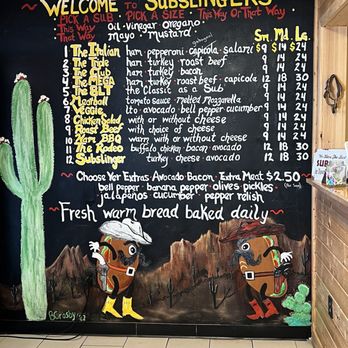 WELCOME TO SUBSLINGERS
PICK A SUB • PICK A SIZE • This Way Or That Way
This Way Oil • Vinegar Oregano
That Way Mayo • Mustard
Sm. Md. Lg.
1 The Italian ham • pepperoni • capicola • salami $9 $14 $24
2 The Triple ham turkey roast beef 9 14 24
3 The Club ham turkey bacon 9 14 24
4 The MEGA ham • turkey • roast beef • capicola 12 18 30
5 The BLT the Classic as a Sub 9 14 24
6 Meatball tomato sauce • melted Mozzarella 9 14 24
7 Veggie lto avocado bell pepper cucumber 9 14 24
8 Chicken Salad with or without cheese 9 14 24
9 Roast Beef with choice of cheese 9 14 24
10 BBQ warm with or without cheese 9 14 24
11 The Rodeo buffalo chicken • bacon • avocado 12 18 30
12 Subslinger turkey • cheese • avocado 12 18 30
Choose Yer Extras: Avocado • Bacon • Extra Meat $2.50
bell pepper • banana pepper • olives pickles •
jalapenos cucumber • pepper relish
Fresh warm bread baked daily